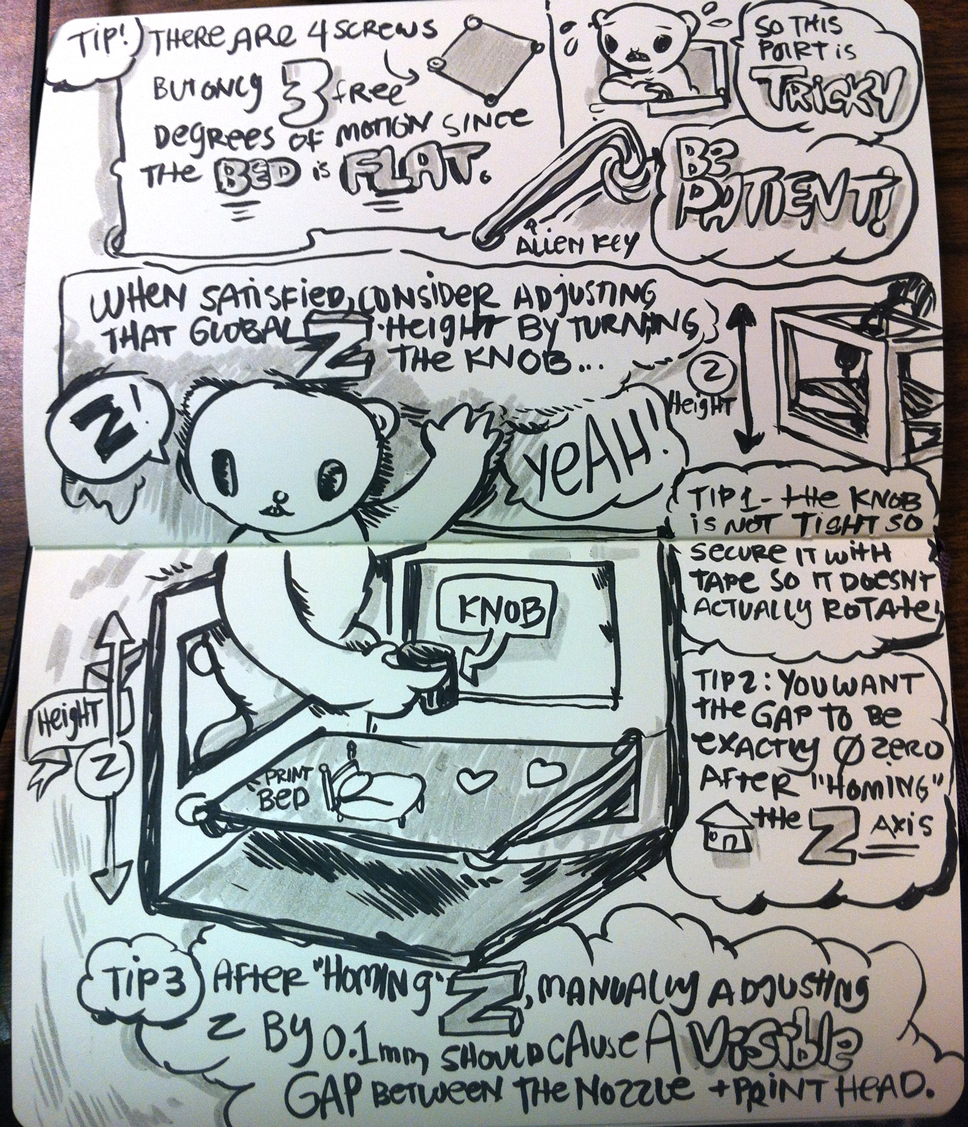 TIP! THERE ARE 4 SCREWS
BUT ONLY 3 free
DEGREES OF MOTION SINCE
THE BED is FLAT.
SO THIS
PART is
TRICKY
BE
PATIENT!
Allen Key
WHEN SATISFIED, CONSIDER ADJUSTING
THAT GLOBAL Z-HEIGHT BY TURNING
THE KNOB...
Z!
YEAH!
Z
Height
TIP 1 - the KNOB
is NOT TIGHT SO
SECURE IT WITH
TAPE SO IT DOESNT
ACTUALLY ROTATE!
KNOB
Height
Z
PRINT
BED
TIP 2: YOU WANT
THE GAP TO BE
EXACTLY Ø ZERO
AFTER "HOMING"
the Z AXIS
TIP 3
AFTER "HOMING" Z, MANUALLY ADJUSTING
Z BY 0.1mm SHOULD CAUSE A Visible
GAP BETWEEN THE NOZZLE + PRINT HEAD.